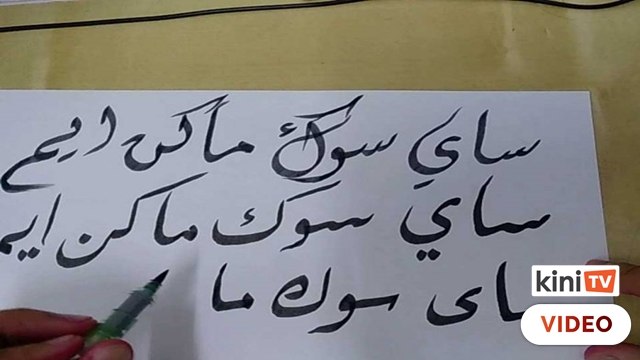 ساي سوك ماكن ايم
ساي سوك ماكن ايم
ساى سوك ما
kini TV
VIDEO